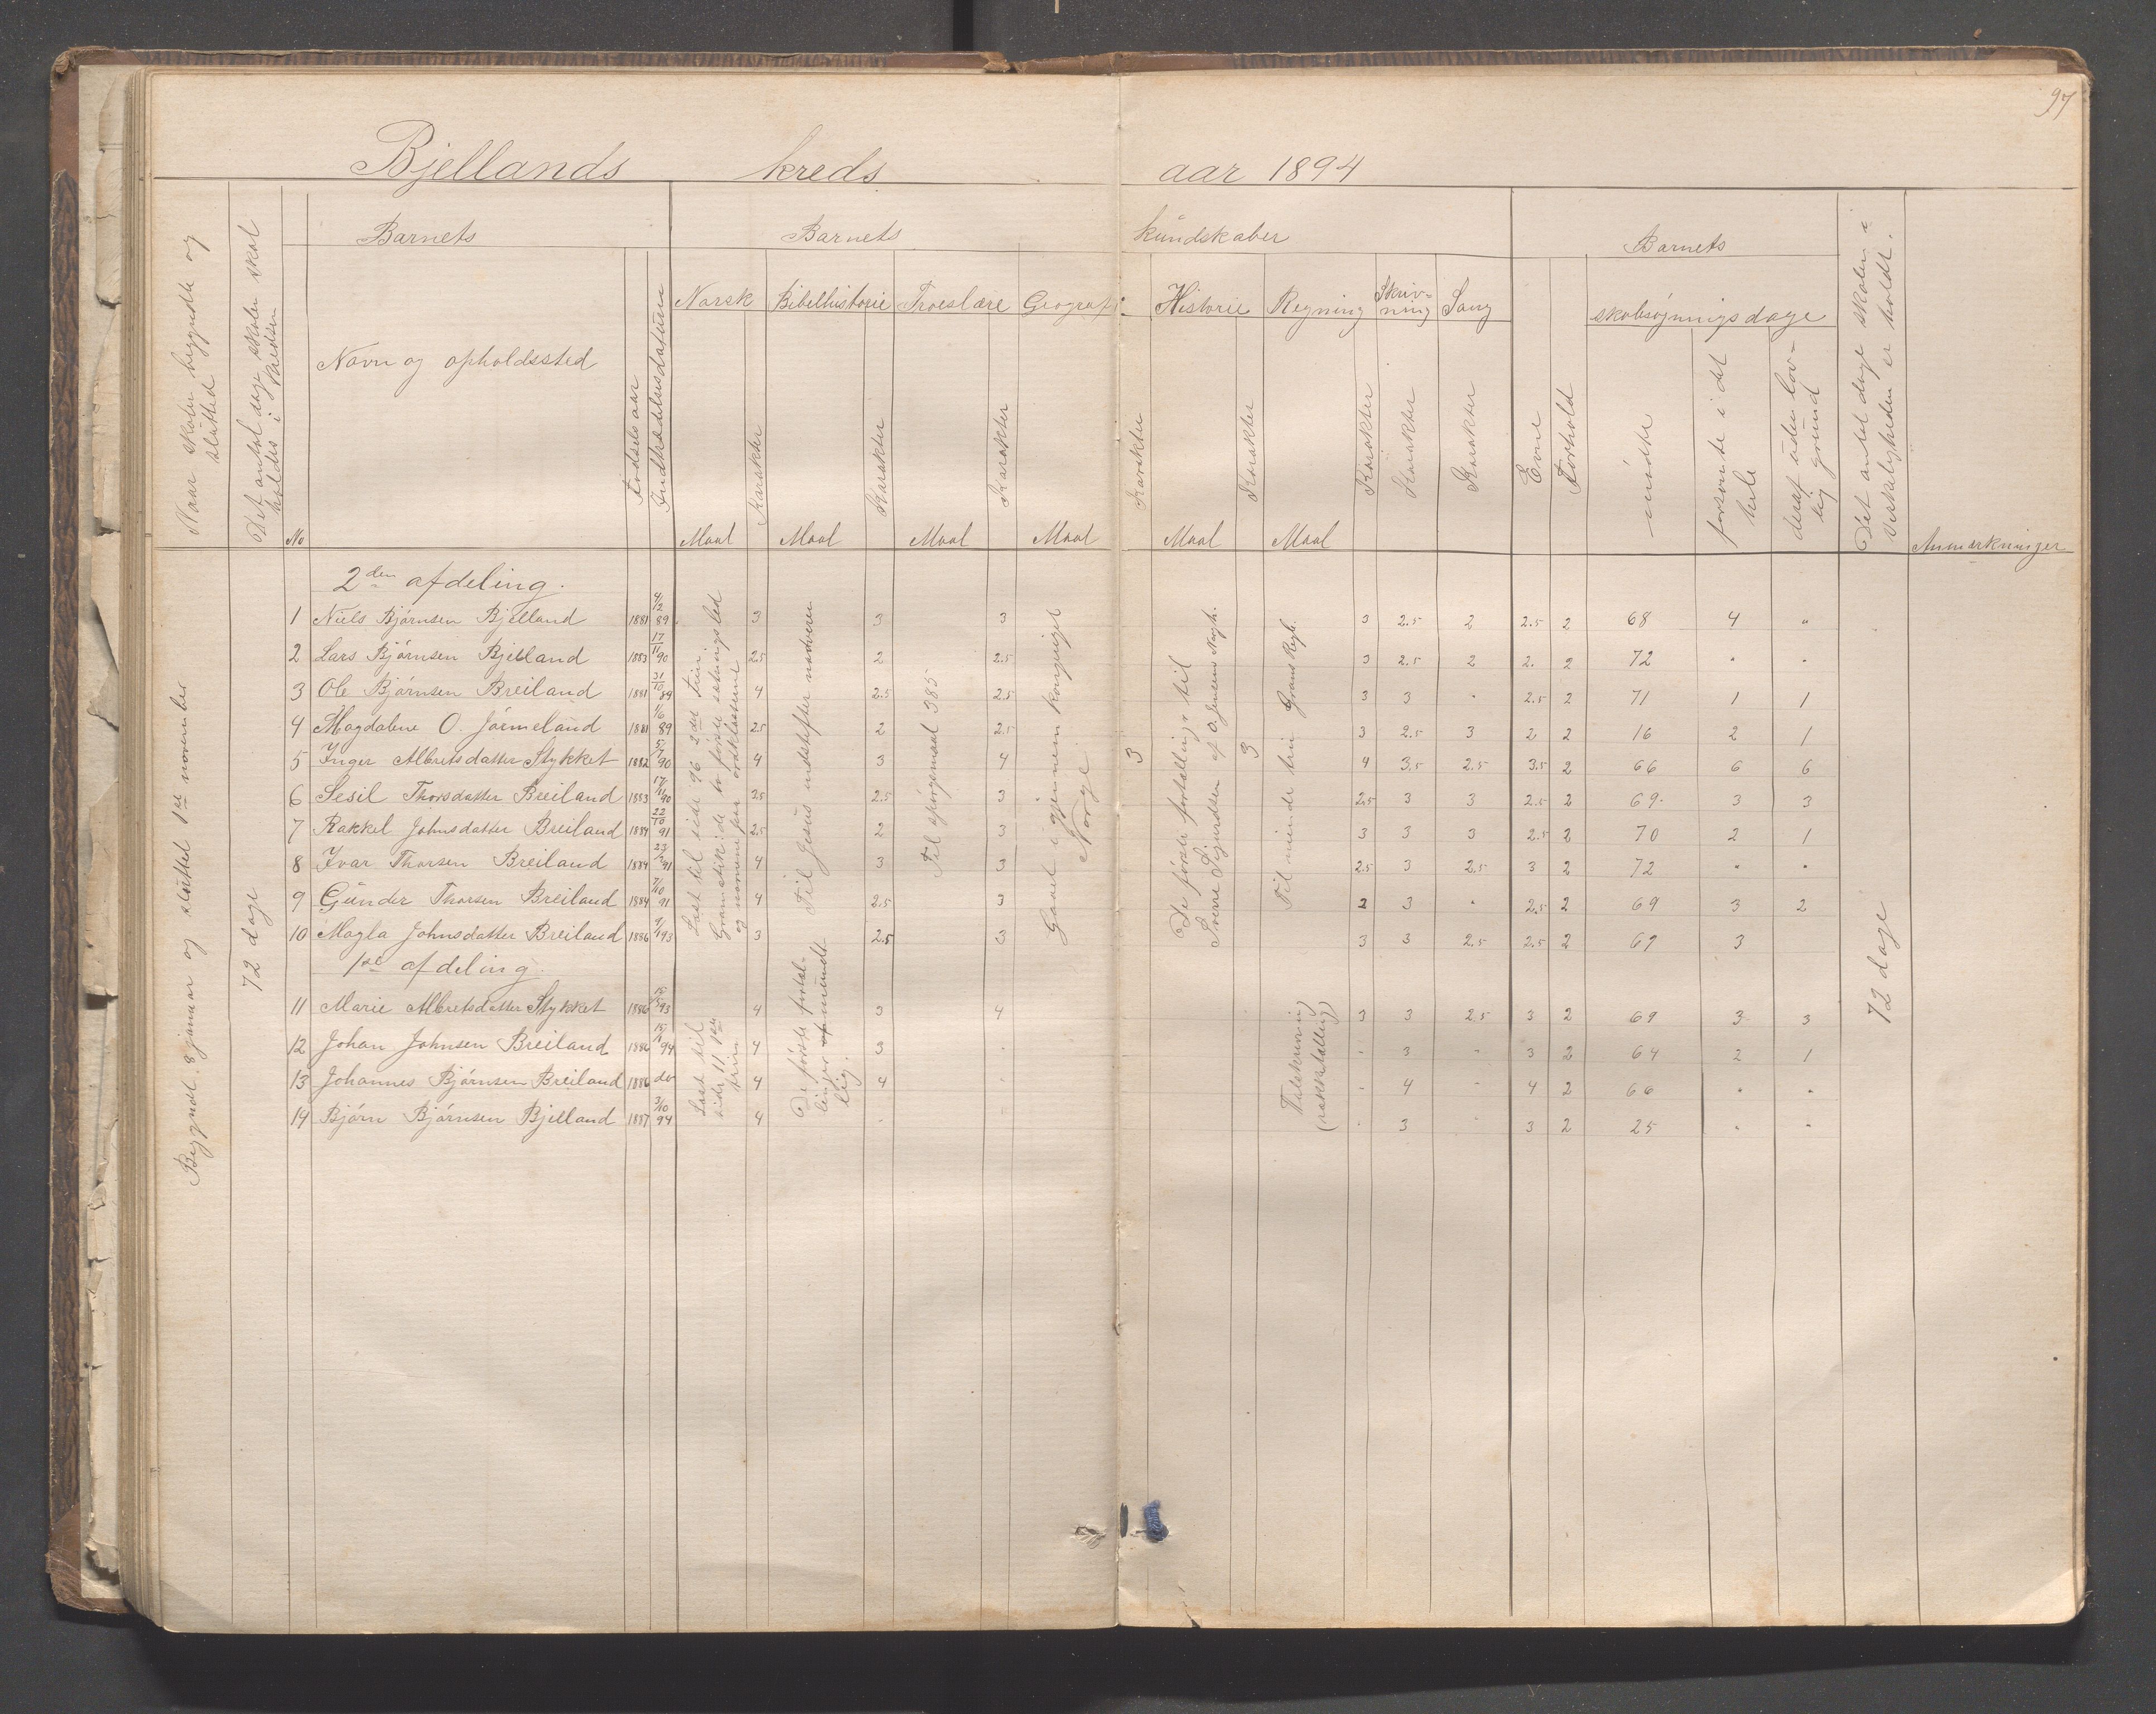 97
Bjellands kreds aar 1894
Naar skolen begyndte og slutted
Det antal dage skolen skal holdes i kredsen
No
Barnets
Navn og opholdssted
Fødselsaar
Indtrædelsesdatum
Barnets kundskaber
Norsk Bibelhistorie Troeslære Geografi Historie Regning Skriv=ning Sang
Maal Karakter Maal Karakter Maal Karakter Maal Karakter Maal Karakter Maal Karakter Karakter Karakter
Evne
Forhold
Barnets
skolesøgningsdage
mødte
forsømte i det hele
deraf uden lov-lig grund
Det antal dage skolen i virkeligheden er holdt.
Anmærkninger
Begyndt 8 januar og sluttet 1ste november
72 dage
2den afdeling.
1 Niels Bjørnsen Bjelland 1881 4/12 89 3 3 3 3 2.5 2 2.5 2 68 4 "
2 Lars Bjørnsen Bjelland 1883 17/11 90 2.5 2 2.5 3 2.5 2 2. 2 72 " "
3 Ole Bjørnsen Breiland 1881 31/10 89 4 2.5 2.5 3 3 " 2.5 2 71 1 1
4 Magdalene O. Jørmeland 1881 1/6 89 2.5 2 2.5 3 2.5 3 2 2 16 2 1
5 Inger Albretsdatter Stykket 1882 5/7 90 4 3 4 4 3.5 2.5 3.5 2 66 6 6
6 Sesil Thorsdatter Breiland 1883 17/11 90 2.5 2.5 3 2.5 3 3 2.5 2 69 3 3
7 Rakkel Johnsdatter Breiland 1884 22/10 91 2.5 2 3 3 3 3 2.5 2 70 2 1
8 Ivar Thorsen Breiland 1884 91 4 3 3 2.5 3 2.5 3 2 72 " "
9 Gunder Thorsen Breiland 1884 7/10 91 4 2.5 3 2 3 " 2.5 2 69 3 2
10 Magla Johnsdatter Breiland 1886 9/1 93 3 2.5 3 3 3 2.5 2.5 2 69 3
Læst til side 96 2det trin.
Gramatik: de to første sætningsled og navnene paa ordklasserne
Til Jesus indstifter nadveren
Til spørgsmaal 385
Gaaet igjennem kongeriget Norge
3
De første fortællinger til Sverre Sigurdsen af O. Jensens Norgh.
3
Til niende trin Grans Regb.
1ste afdeling.
11 Marie Albretsdatter Stykket 1886 93 4 3 4 3 3 2.5 3 2 69 3 3
12 Johan Johnsen Breiland 1886 94 4 3 " " 3 " 3 2 64 2 1
13 Johannes Bjørnsen Breiland 1886 do 4 4 " " 4 " 4 2 66 " "
14 Bjørn Bjørnsen Bjelland 1887 3/10 94 4 " " 3 " 3 2 25 " "
Læst til side 11 1ste trin
De første fortæl-linger mundt-lig.
Talskrivning (rækketælling)
72 dage